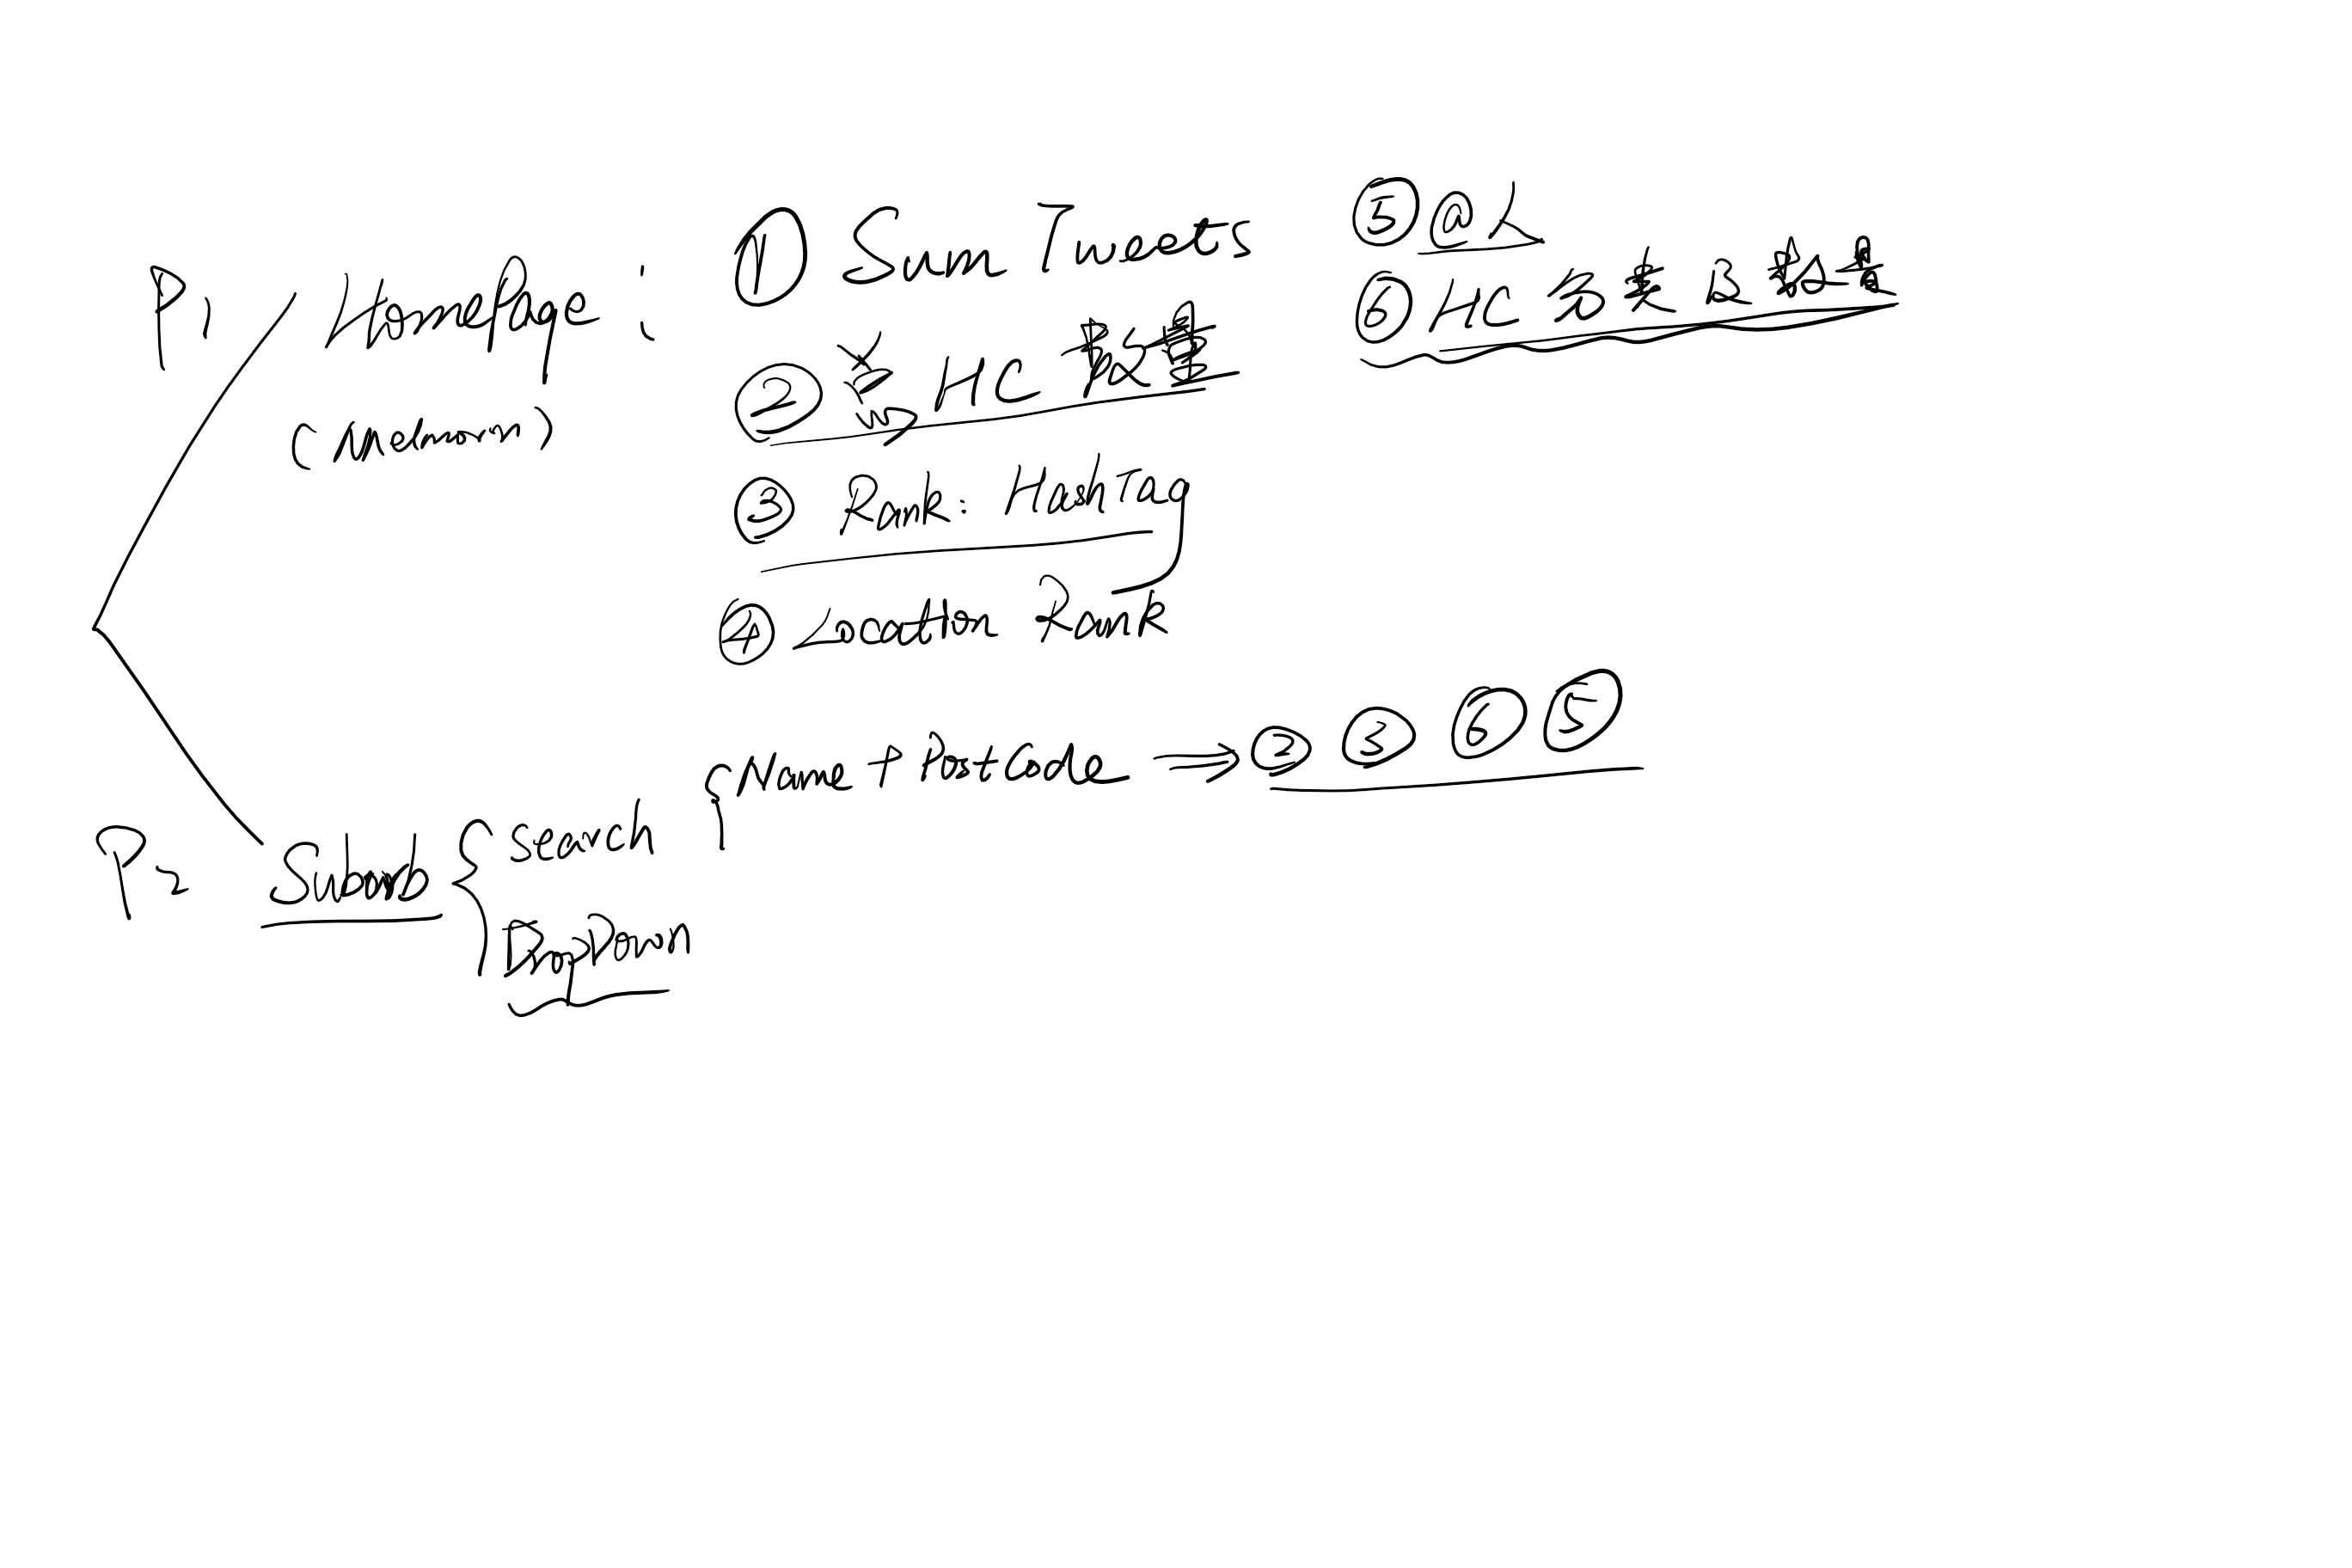 P1 HomePage :
(Melbourn)
① Sum Tweets
② 总 HC 数量
③ Rank: HashTag
④ Location Rank
⑤ @人
⑥ HC 种类及数量
P2 Suburb { Search
DropDown
{ Name + PostCode ⇒ ② ③ ⑥ ⑤